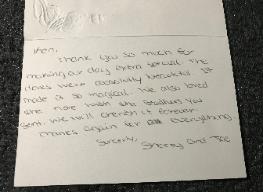 Thank you so much for
making our day extra special. The
doves were absolutely beautiful. It
made it so magical. We also loved
the note with the you
sent. We will cherish it forever.
Thanks again for everything.
Sincerely,
Sherry and Joe